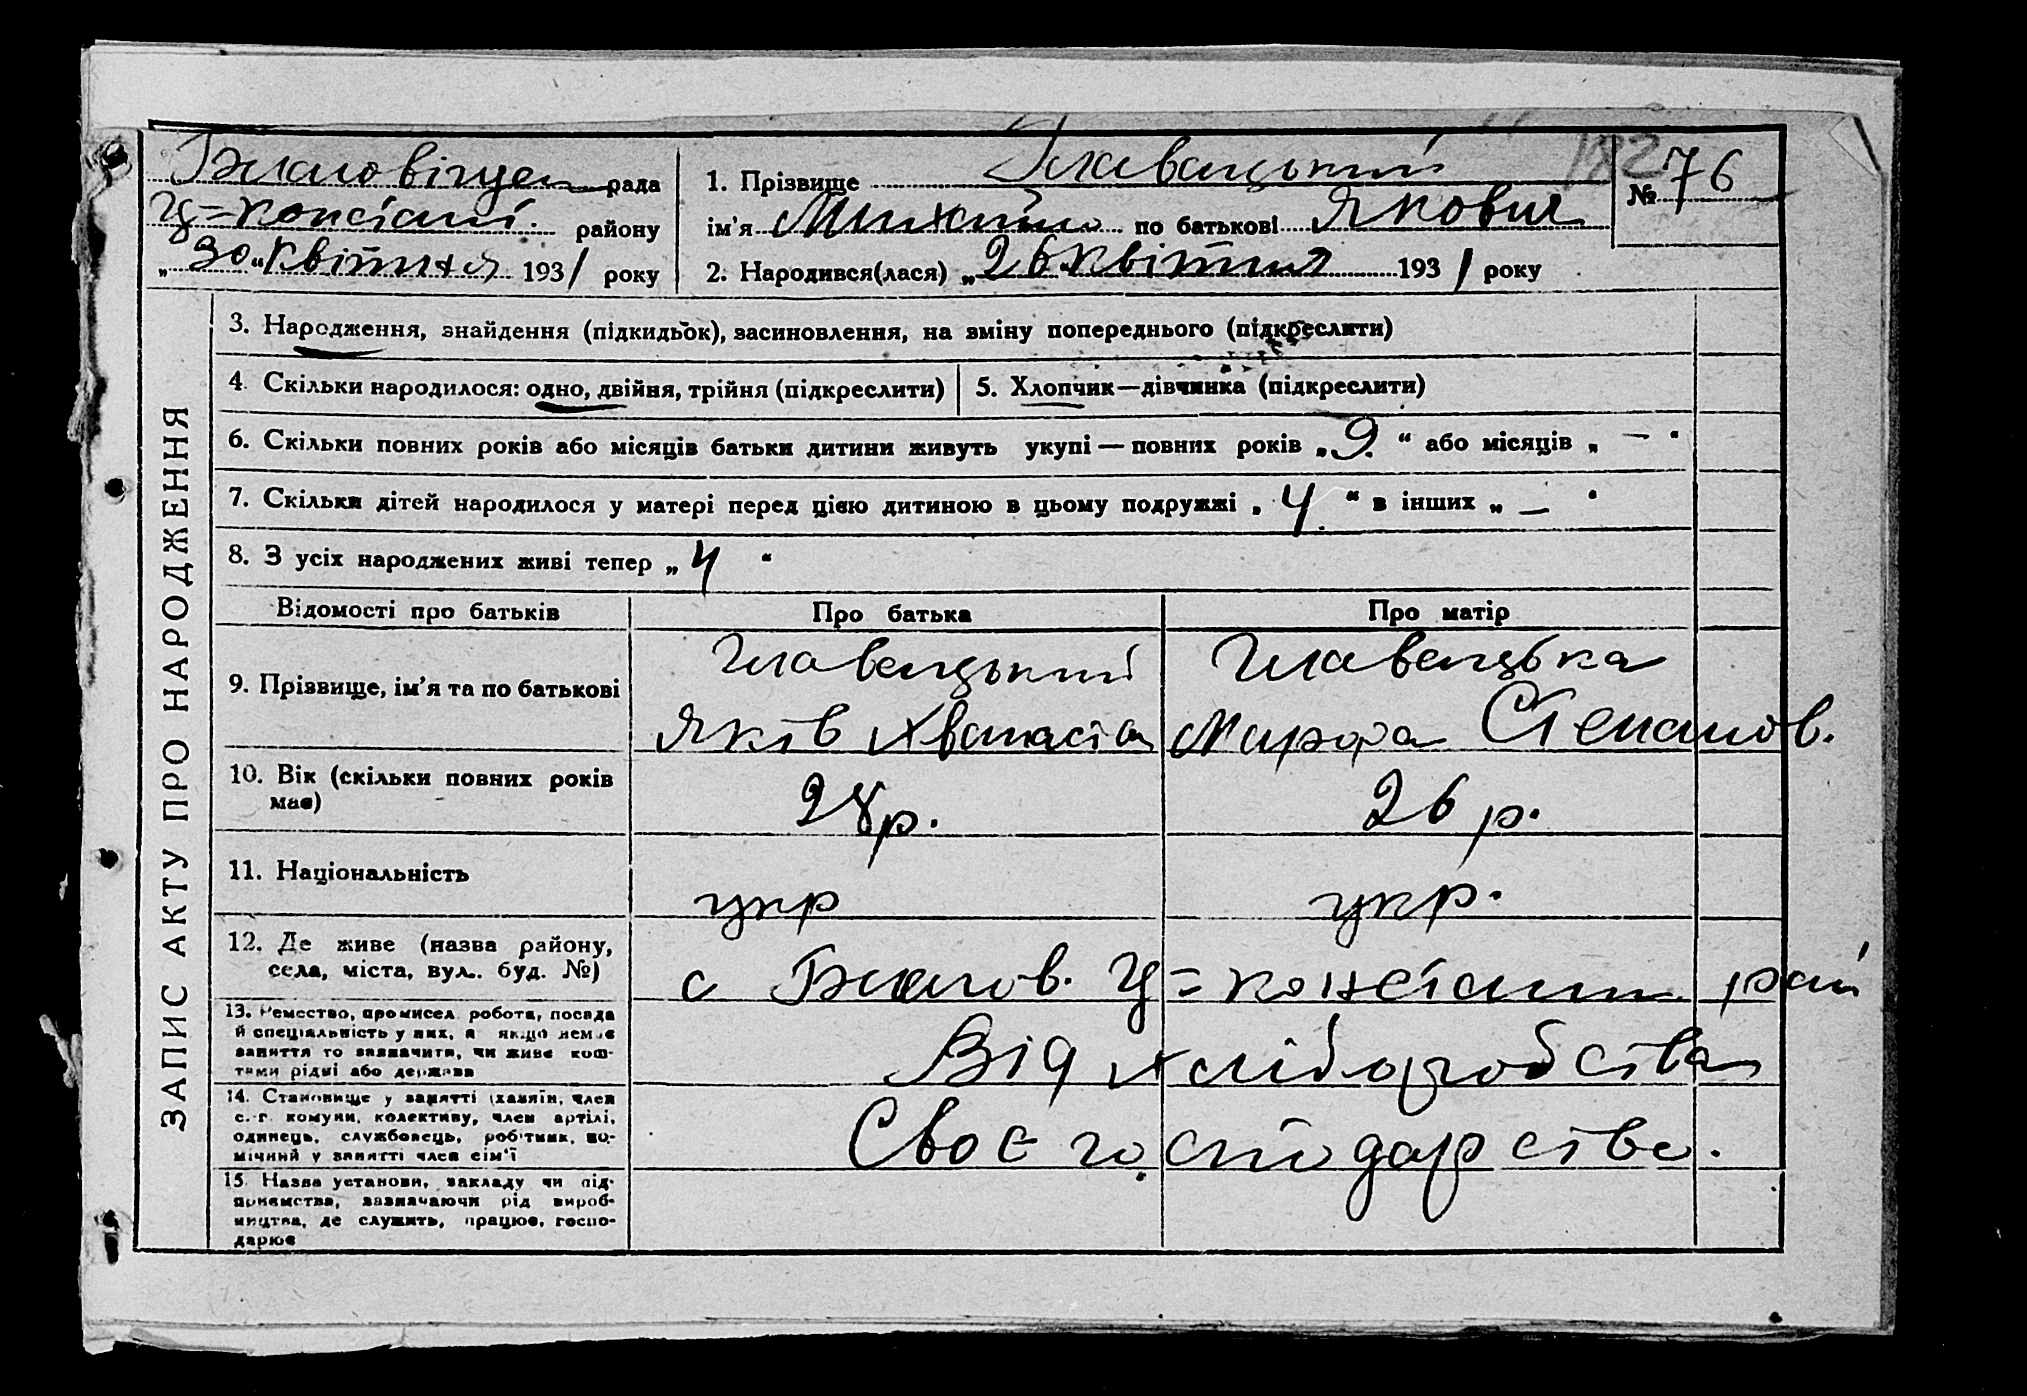 Главацький 182
рада 1. Прізвище № 76
району ім'я Михайло по батькові Якович
„30“ Квітня 1931 року 2. Народився(лася) „26“ Квітня 1931 року
ЗАПИС АКТУ ПРО НАРОДЖЕННЯ
3. Народження, знайдення (підкидьок), засиновлення, на зміну попереднього (підкреслити)
4. Скільки народилося: одно, двійня, трійня (підкреслити) 5. Хлопчик—дівчинка (підкреслити)
6. Скільки повних років або місяців батьки дитини живуть укупі — повних років „9.“ або місяців „—“
7. Скільки дітей народилося у матері перед цією дитиною в цьому подружжі „4“ в інших „—“
8. З усіх народжених живі тепер „4“
Відомості про батьків Про батька Про матір
9. Прізвище, ім'я та по батькові Главацький Главацька
Яків Хванасіов Степанов.
10. Вік (скільки повних років має) 28р. 26 р.
11. Національність укр укр.
12. Де живе (назва району,
села, міста, вул.. буд. №) с Ц=констант рай
13. Ремество, промисел, робота, посада
й спеціяльність у них, а якщо немає
заняття то зазначити, чи живе кош-
тами рідні або держави Від хліборобства
14. Становище у занятті (хазяїн, член
с.-г. комуни, колективу, член артілі,
одинець, службовець, робітник, по-
мічний у занятті член сім'ї Своє господарство.
15. Назва установи, закладу чи під-
приємства, зазначаючи рід вироб-
ництва, де служить, працює, госпо-
дарює